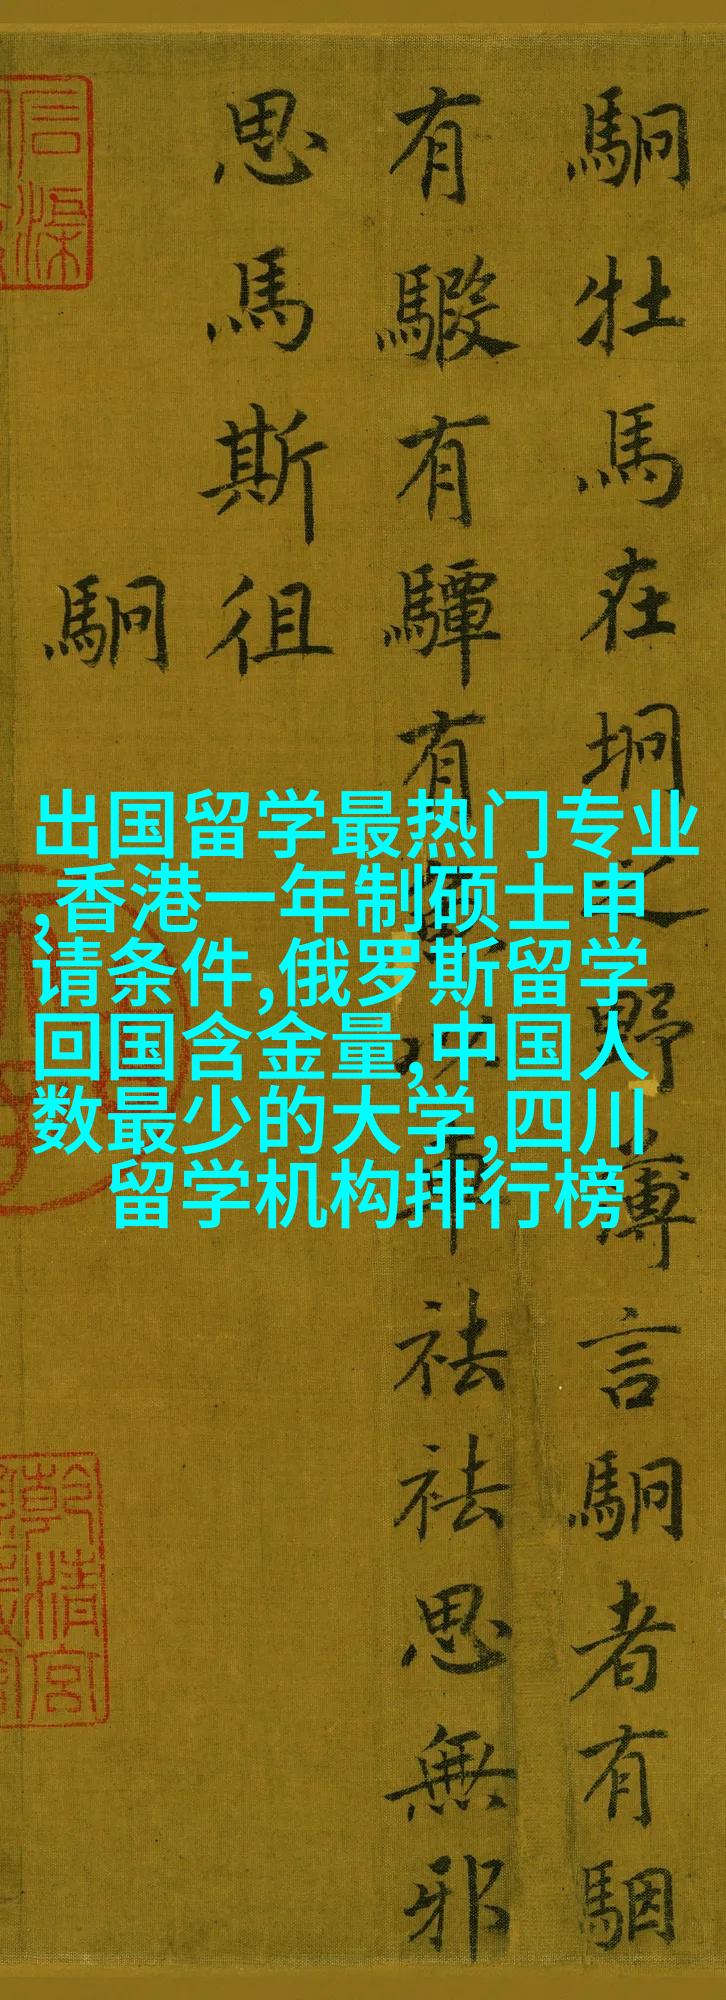 駉牡馬在坰之野薄言駉者有駰
有騢有驔有魚以車祛祛思無邪
思馬斯徂
駉
出国留学最热门专业
,香港一年制硕士申
请条件,俄罗斯留学
回国含金量,中国人
数最少的大学,四川
留学机构排行榜
乾清宮